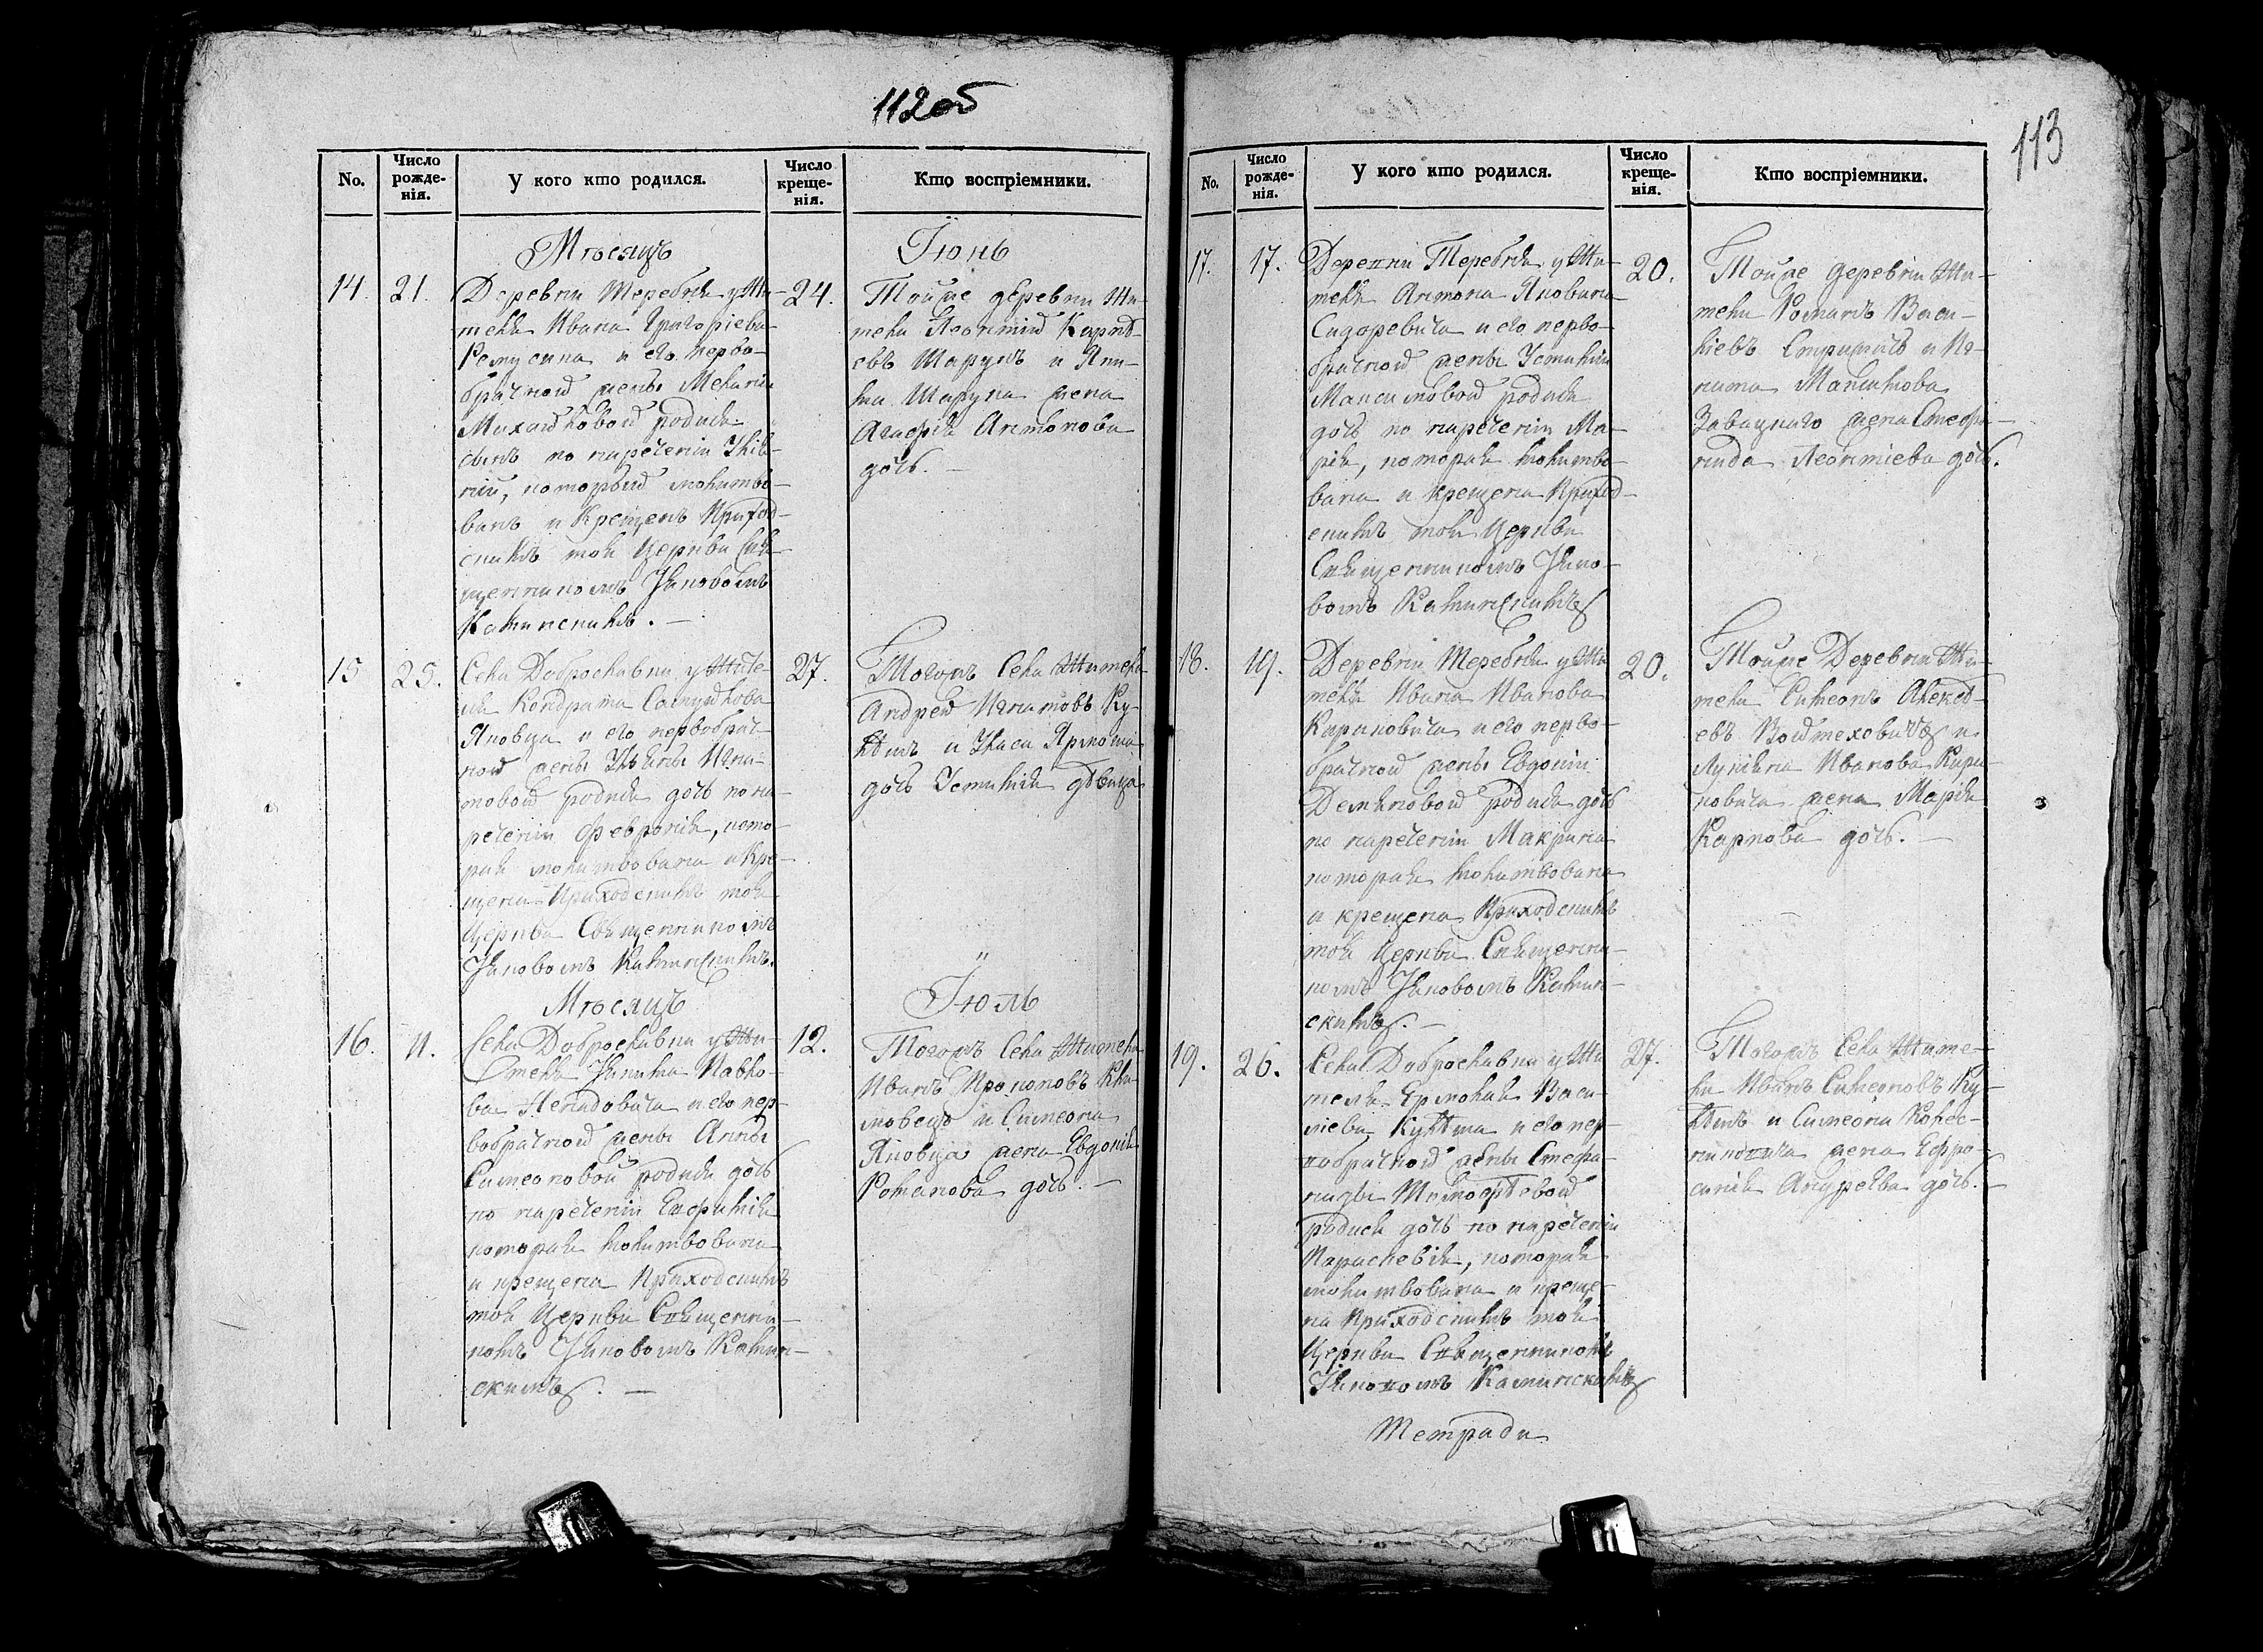 112об
No.
Число рожде-нія.
У кого кто родился.
Число креще-нія.
Кто воспріемники.
Мѣсяцъ
Іюнь
14.
21.
Деревни Теребли у Жи-
теля Ивана Григоріева
и его перво-
брачной жены Меланіи
Михайловой родился
сынъ по нареченіи Іули-
ній, который молитво-
ванъ и крещенъ Приход-
скимъ тоя Церкви Свя-
щенникомъ Іяковомъ
Калинскимъ.
24.
Тойже деревни Жи-
тели Леонтій Карпѣ-
евъ Шарупъ и Яки-
ма Шарупа жена
Агафія Антонова
дочь.
15
25.
Села Доброславки у Жите-
ля Кондрата Самуйлова
Яковца и его первобрач-
ной жены Ульяны Игна-
товой родися дочь по на-
реченіи Февронія, кото-
рая молитвована и кре-
щена Приходскимъ тоя
Церкви Священникомъ
Іяковомъ Калинскимъ.
27.
Тогожъ Села Жители
Андрей Игнатовъ Ку-
и
дочь Устинія дѣвица
Мѣсяцъ
Іюль
16.
11.
Села Доброславки у Жи-
теля Якима Павло-
ва и его пер-
вобрачной жены Анны
Симеоновой родися дочь
по нареченіи Евфимія
которая молитвована
и крещена Приходскимъ
тоя Церкви Священни-
комъ Іяковомъ Калин-
скимъ.
12.
Тогожъ Села Жители
Иванъ Прокоповъ Кли-
мовецъ и Симеона
Яковца жена Евдокія
Романова дочь.
113
No.
Число рожде-нія.
У кого кто родился.
Число креще-нія.
Кто воспріемники.
17.
17.
Деревни Теребли у Жи-
теля Антона Яковлива
Сидоревича и его перво-
брачной жены Устиніи
Максимовой родися
дочь по нареченіи Ма-
рія, которая молитво-
вана и крещена Приход-
скимъ тоя Церкви
Священникомъ Іяко-
вомъ Калинскимъ
20.
Тойже деревни Жи-
тели Романъ Васи-
ліевъ и Иг-
ната Максимова
Завацкаго жена Стефа-
нида Леонтіева дочь.
18.
19.
Деревни Теребли у Жи-
теля Ивана Иванова
Кириловича и его перво-
брачной жены Евдокіи
Демяновой родися дочь
по нареченіи Макрина
которая молитвована
и крещена Приходскимъ
тоя Церкви Священни-
комъ Іяковомъ Калин-
скимъ.
20.
Тойже Деревни Жи-
тели Симеонъ Алексѣ-
евъ Войтеховичъ и
Лукіяна Иванова Кири-
ловича жена Марія
Карпова дочь.
19.
26.
Села Доброславки у Жи-
теля Ермолая Васи-
ліева и его пер-
вобрачной жены Стефа-
ниды Тимофѣевой
родися дочь по нареченіи
Параскевія, которая
молитвована и креще-
на Приходскимъ тоя
Церкви Священникомъ
Іяковомъ Калинскимъ
27.
Тогожъ Села Жите-
ли Иванъ Симеоновъ Ку-
и Симеона Колес-
никовича жена Ефро-
синія Андреева дочь.
Тетради